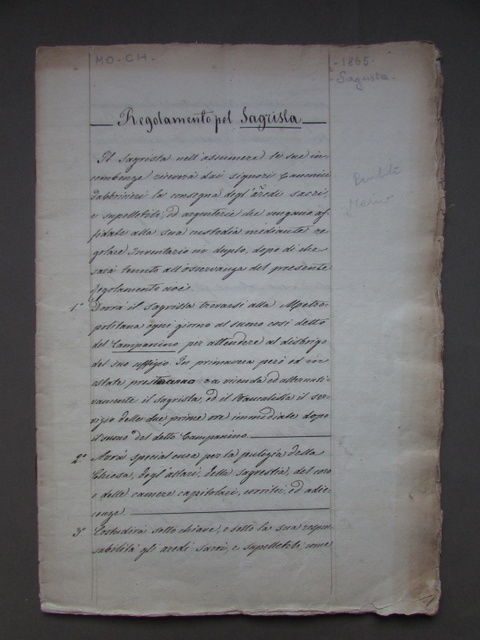 MO-CH.
- 1865 -
Sagrista.
Regolamento pel Sagrista
Il Sagrista nell'assumere le sue in=
combenze riceverà dai signori Canonici
Fabbricieri la consegna degl'arredi sacri,
e supellettili, ed argenterie che vengano af=
fidate alla sua custodia mediante re=
golare Inventario in duplo, dopo di che
sarà tenuto all'osservanza del presente
regolamento
1° Dovrà il Sagrista trovarsi alla Metro=
politana ogni giorno al suono così detto
del Campanino per attendere al disbrigo
del suo uffizio. In primavera però ed in
estate presteranno a vicenda ed alternati=
vamente il sagrista, ed il ser=
vizio delle due prime ore immediate dopo
il suono del detto Campanino.
2° Avrà special cura per la pulizia della
Chiesa, degl'altari, della sagrestia, del coro
e delle camere capitolari, cortili, ed adia=
cenze
3° Custodirà sotto chiave, e sotto la sua respon=
sabilità gli arredi sacri, e supellettili, come